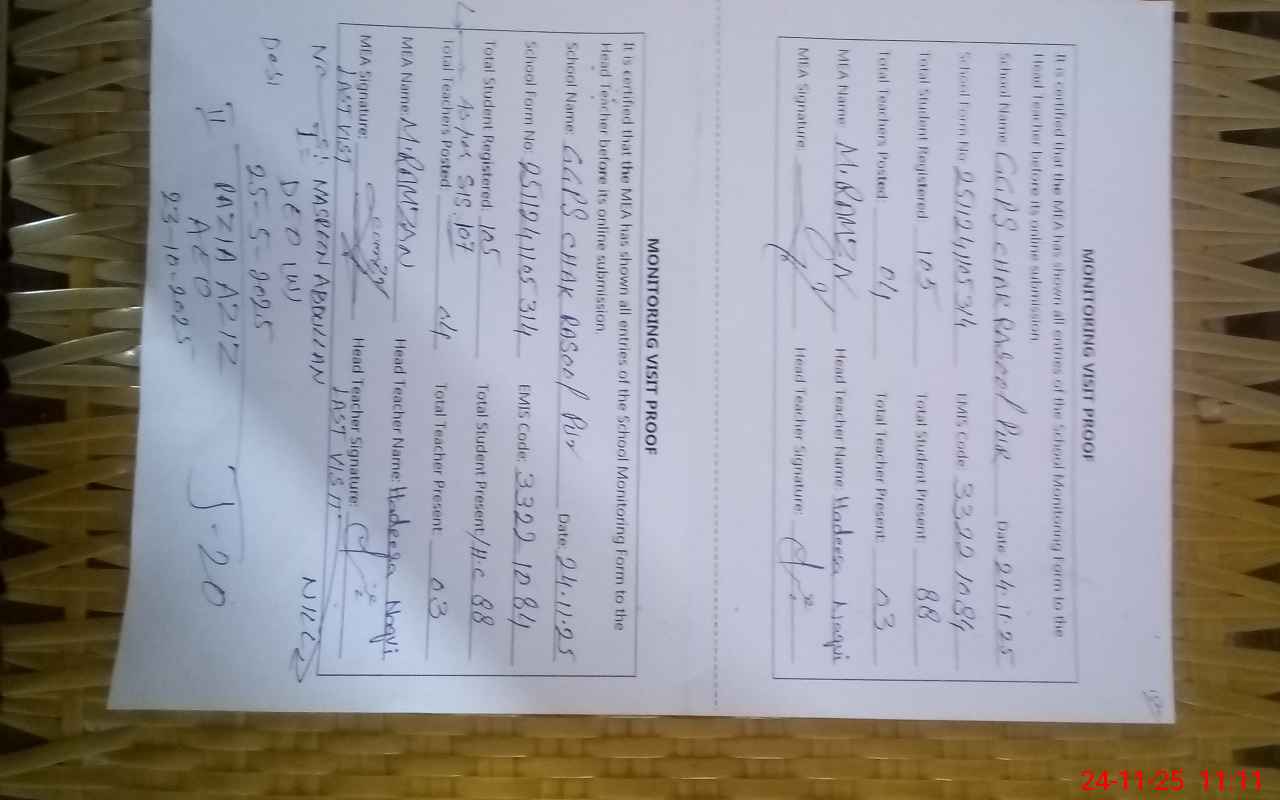 MONITORING VISIT PROOF
It is certified that the MEA has shown all entries of the School Monitoring Form to the
Head Teacher before its online submission.
School Name: GGPS CHAK RASOOL PUR Date: 24.11.25
School Form No: 251241105314 EMIS Code: 33221084
Total Student Registered: 105 Total Student Present: 88
Total Teachers Posted: 04 Total Teacher Present: 03
MEA Name: M.RAMZAN Head Teacher Name: Hadeesa Naqvi
MEA Signature: Head Teacher Signature:
MONITORING VISIT PROOF
It is certified that the MEA has shown all entries of the School Monitoring Form to the
Head Teacher before its online submission.
School Name: GGPS CHAK RASOOL PUR Date: 24.11.25
School Form No: 251241105314 EMIS Code: 33221084
Total Student Registered: 105 Total Student Present: /H.C 88
As per SIS. 107
Total Teachers Posted: 04 Total Teacher Present: 03
MEA Name: M.RAMZAN Head Teacher Name: Hadeesa Naqvi
MEA Signature: Head Teacher Signature:
LAST VISIT LAST VISIT
NASREEN ABDULLAH NILL
DEO (W)
25-5-2025
RAZIA AZIZ J-20
AEO
23-10-2025
24-11-25 11:11